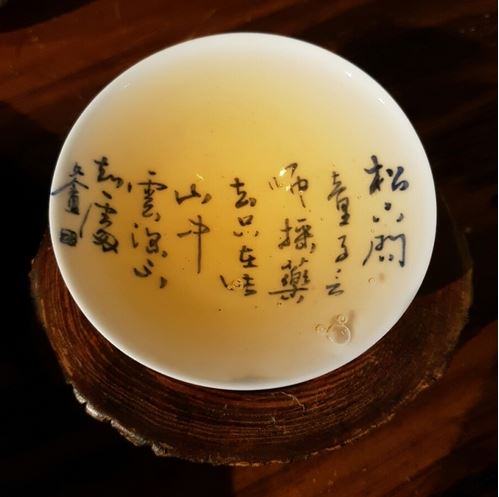 松下問
童子言
師採藥
去只在此
山中
雲深不
知處